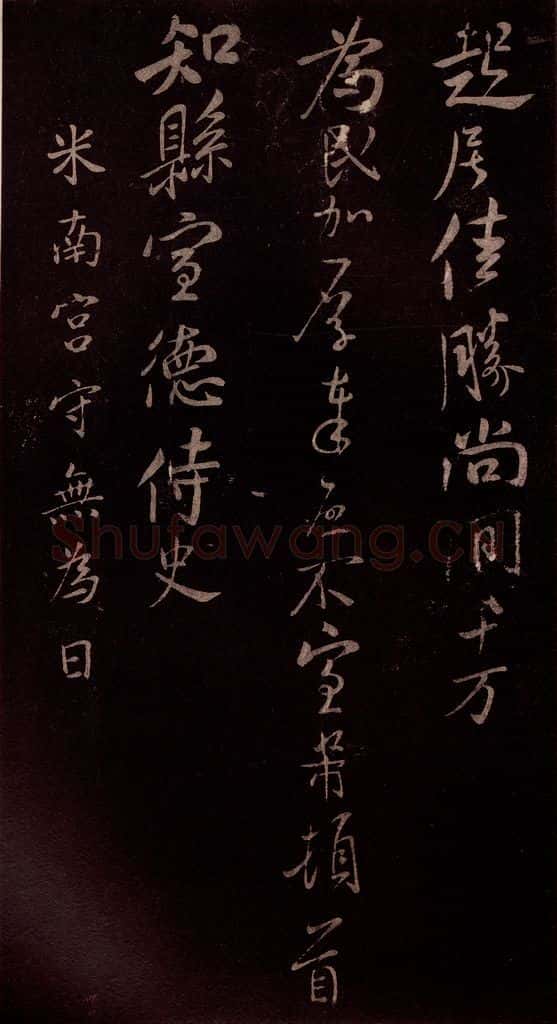 起居佳勝尚間千万
為民加厚不宣芾頓首
知縣宣德侍史
米南宮守無為日
Shufawang.cn